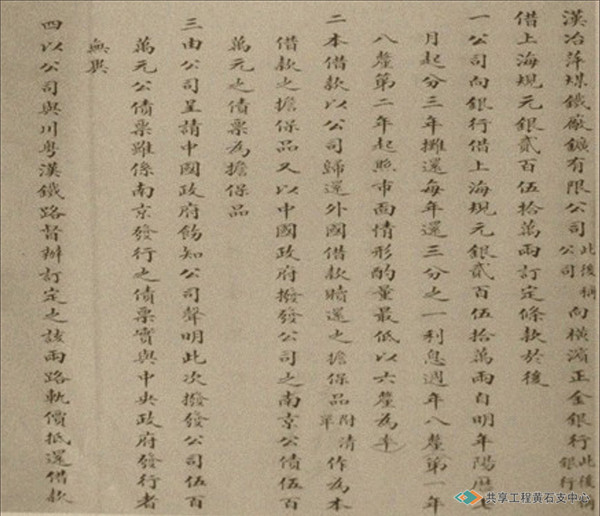 漢冶萍煤鐵廠鑛有限公司此後稱公司向橫濱正金銀行此後稱銀行
借上海規元銀貳百伍拾萬兩訂定條款於後
一公司向銀行借上海規元銀貳百伍拾萬兩自明年陽曆七
月起分三年攤還每年還三分之一利息週年八釐第一年
八釐第二年起照市面情形酌量最低以六釐為率
二本借款以公司歸還外國借款贖還之擔保品附清單作為本
借款之擔保品又以中國政府撥發公司之南京公債伍百
萬元之債票為擔保品
三由公司呈請中國政府飭知公司聲明此次撥發公司伍百
萬元公債票雖係南京發行之債票實與中央政府發行者
無異
四以公司與川粵漢鐵路督辦訂定之該兩路軌價抵還借款
共享工程黄石支中心